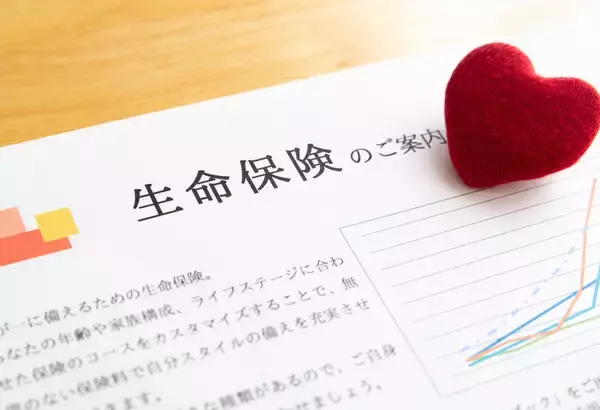 生命保険のご案内
が一に備えるための生命保険。
なたの年齢や家族構成、ライフステージに合わ
せた保険のコースをカスタマイズすることで、無
のない保険料で自分スタイルの備えを充実させ
できます。
な種類があるので、ご自身
せましょう。